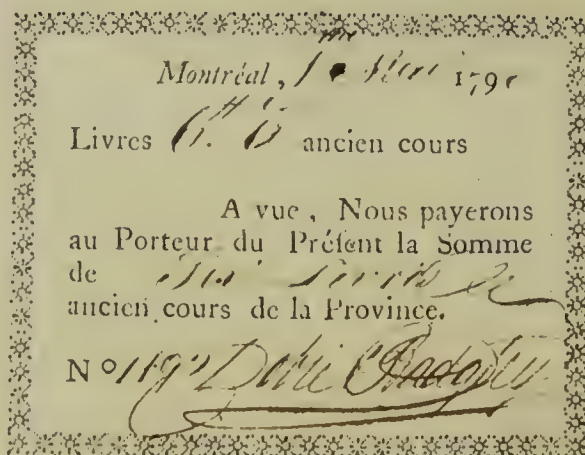 Montréal, 1 Mai 179
Livres 6 ancien cours
A vue, Nous payerons
au Porteur du Préſent la Somme
de Six Livres
ancien cours de la Province.
N° Dobie & Badgley